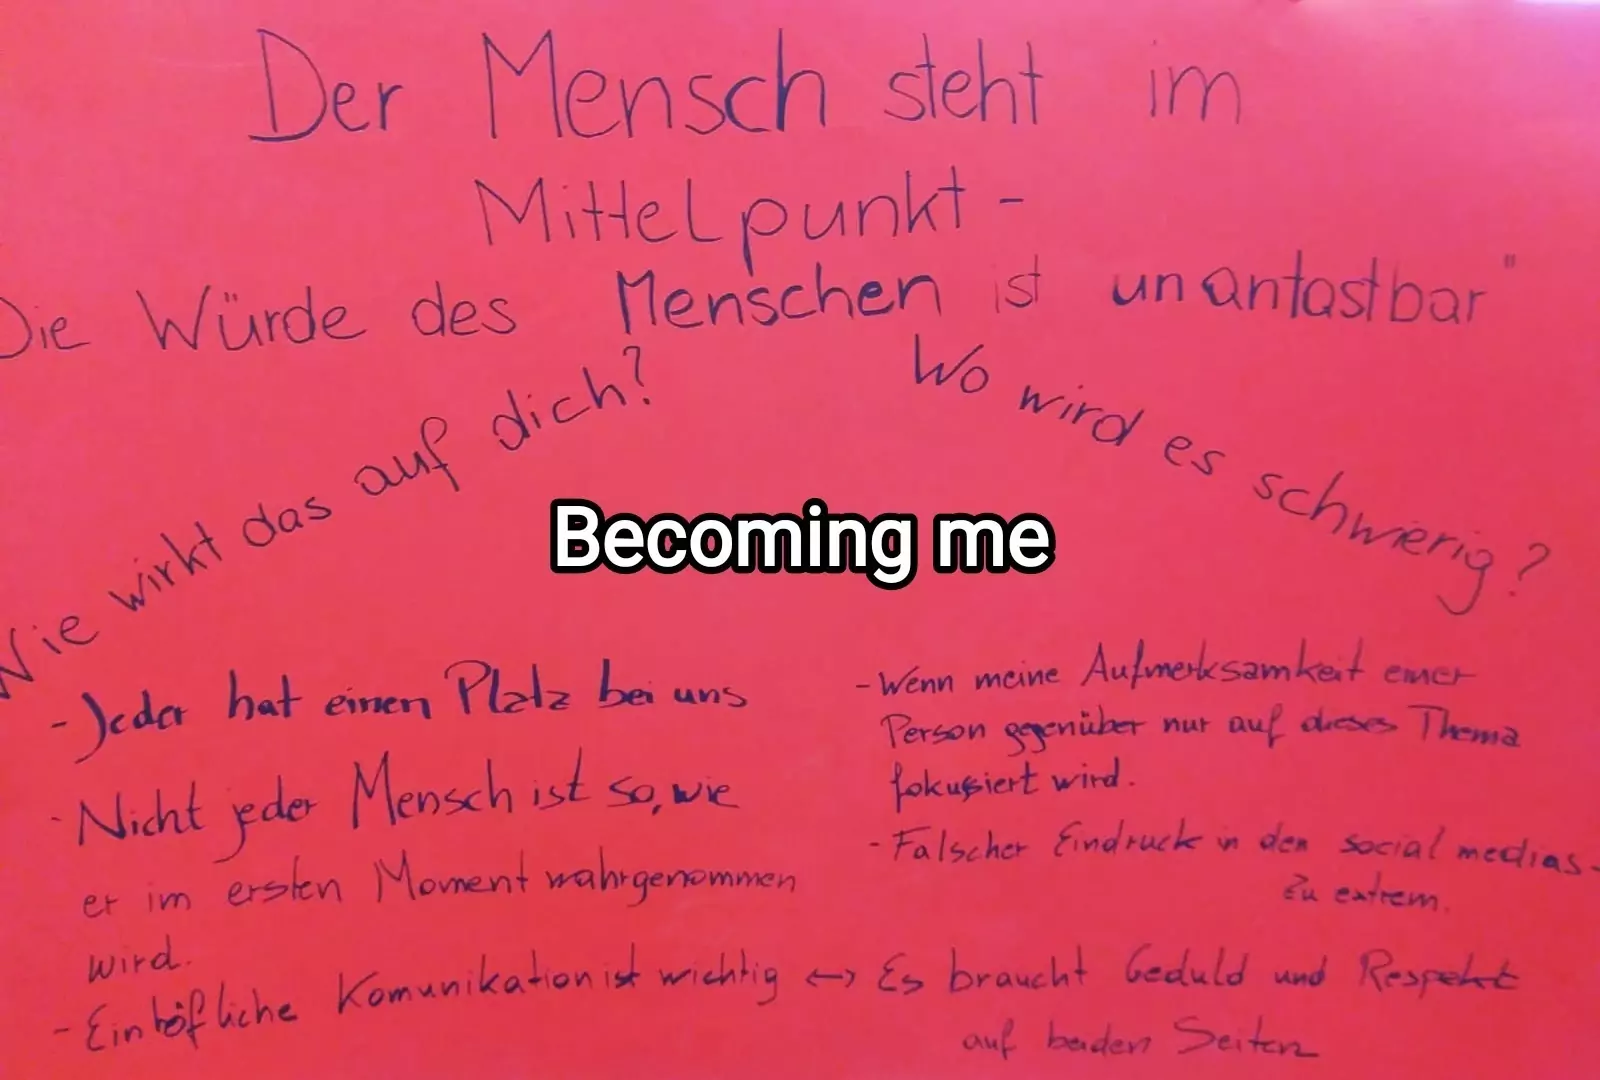 Der Mensch steht im
Mittelpunkt -
Die Würde des Menschen ist unantastbar"
Wie wirkt das auf dich?
Wo wird es schwierig?
Becoming me
- Jeder hat einen Platz bei uns
- Nicht jeder Mensch ist so, wie
er im ersten Moment wahrgenommen
wird.
- Ein höfliche Komunikation ist wichtig ↔ Es braucht Geduld und Respekt
auf beiden Seiten
- Wenn meine Aufmerksamkeit einer
Person gegenüber nur auf dieses Thema
fokussiert wird.
- Falscher Eindruck in den social medias -
zu extrem.